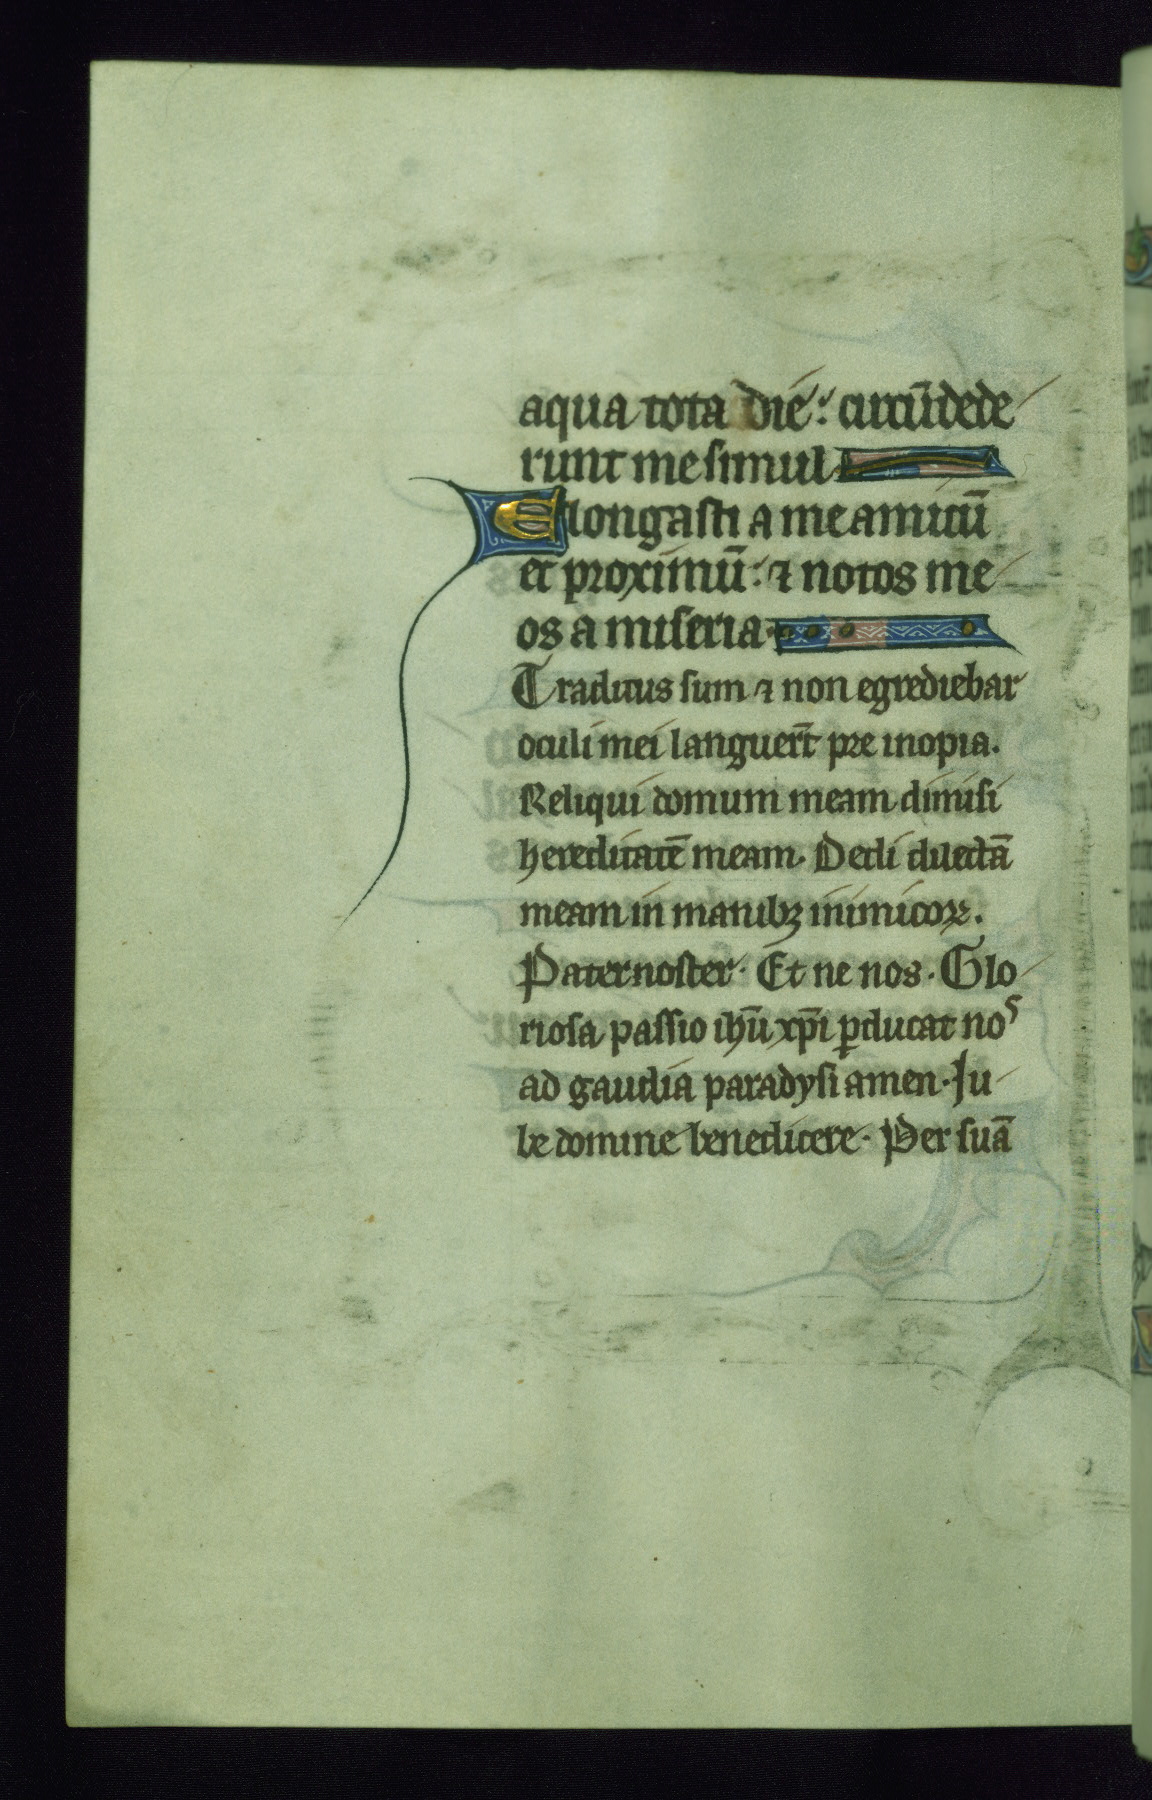 aqua tota die: circūdede
runt me simul
Elongasti a me amicū
et proximū: ⁊ notos me
os a miseria.
Traditus sum ⁊ non egrediebar
oculi mei languer̄t pre inopia.
Reliqui domum meam dimisi
hereditatē meam. Dedi dilectā
meam in manibꝫ inimicoꝝ.
Pater noster. Et ne nos. Glo
riosa passio ihū xp̄i ꝑducat nos
ad gaudia paradysi amen. Iu
be domine benedicere. Per suā